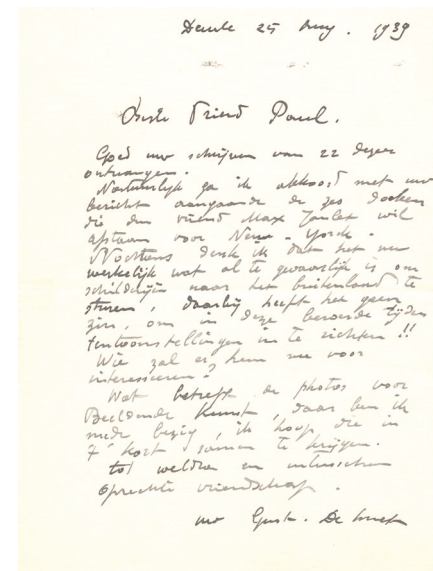 Deurle 25 Aug. 1939
Beste Vriend Paul.
Goed uw schrijven van 22 dezer
ontvangen.
Natuurlijk ga ik akkoord met uw
bericht aangaande de zes doeken
die den vriend Max Janlet wil
afstaan voor New-Yorck.
Nochtans denk ik dat het nu
werkelijk wat al te gevaarlijk is om
schilderijen naar het buitenland te
sturen, daarbij heeft het geen
zin, om in deze beroerde tijden
tentoonstellingen in te richten !!
Wie zal er hem nu voor
interesseeren?
Wat betreft de photos voor
Beeldende Kunst, daar ben ik
mede bezig, ik hoop die in
't kort samen te krijgen.
tot weldra en intusschen
oprechte vriendschap.
uw Gust. De Smet